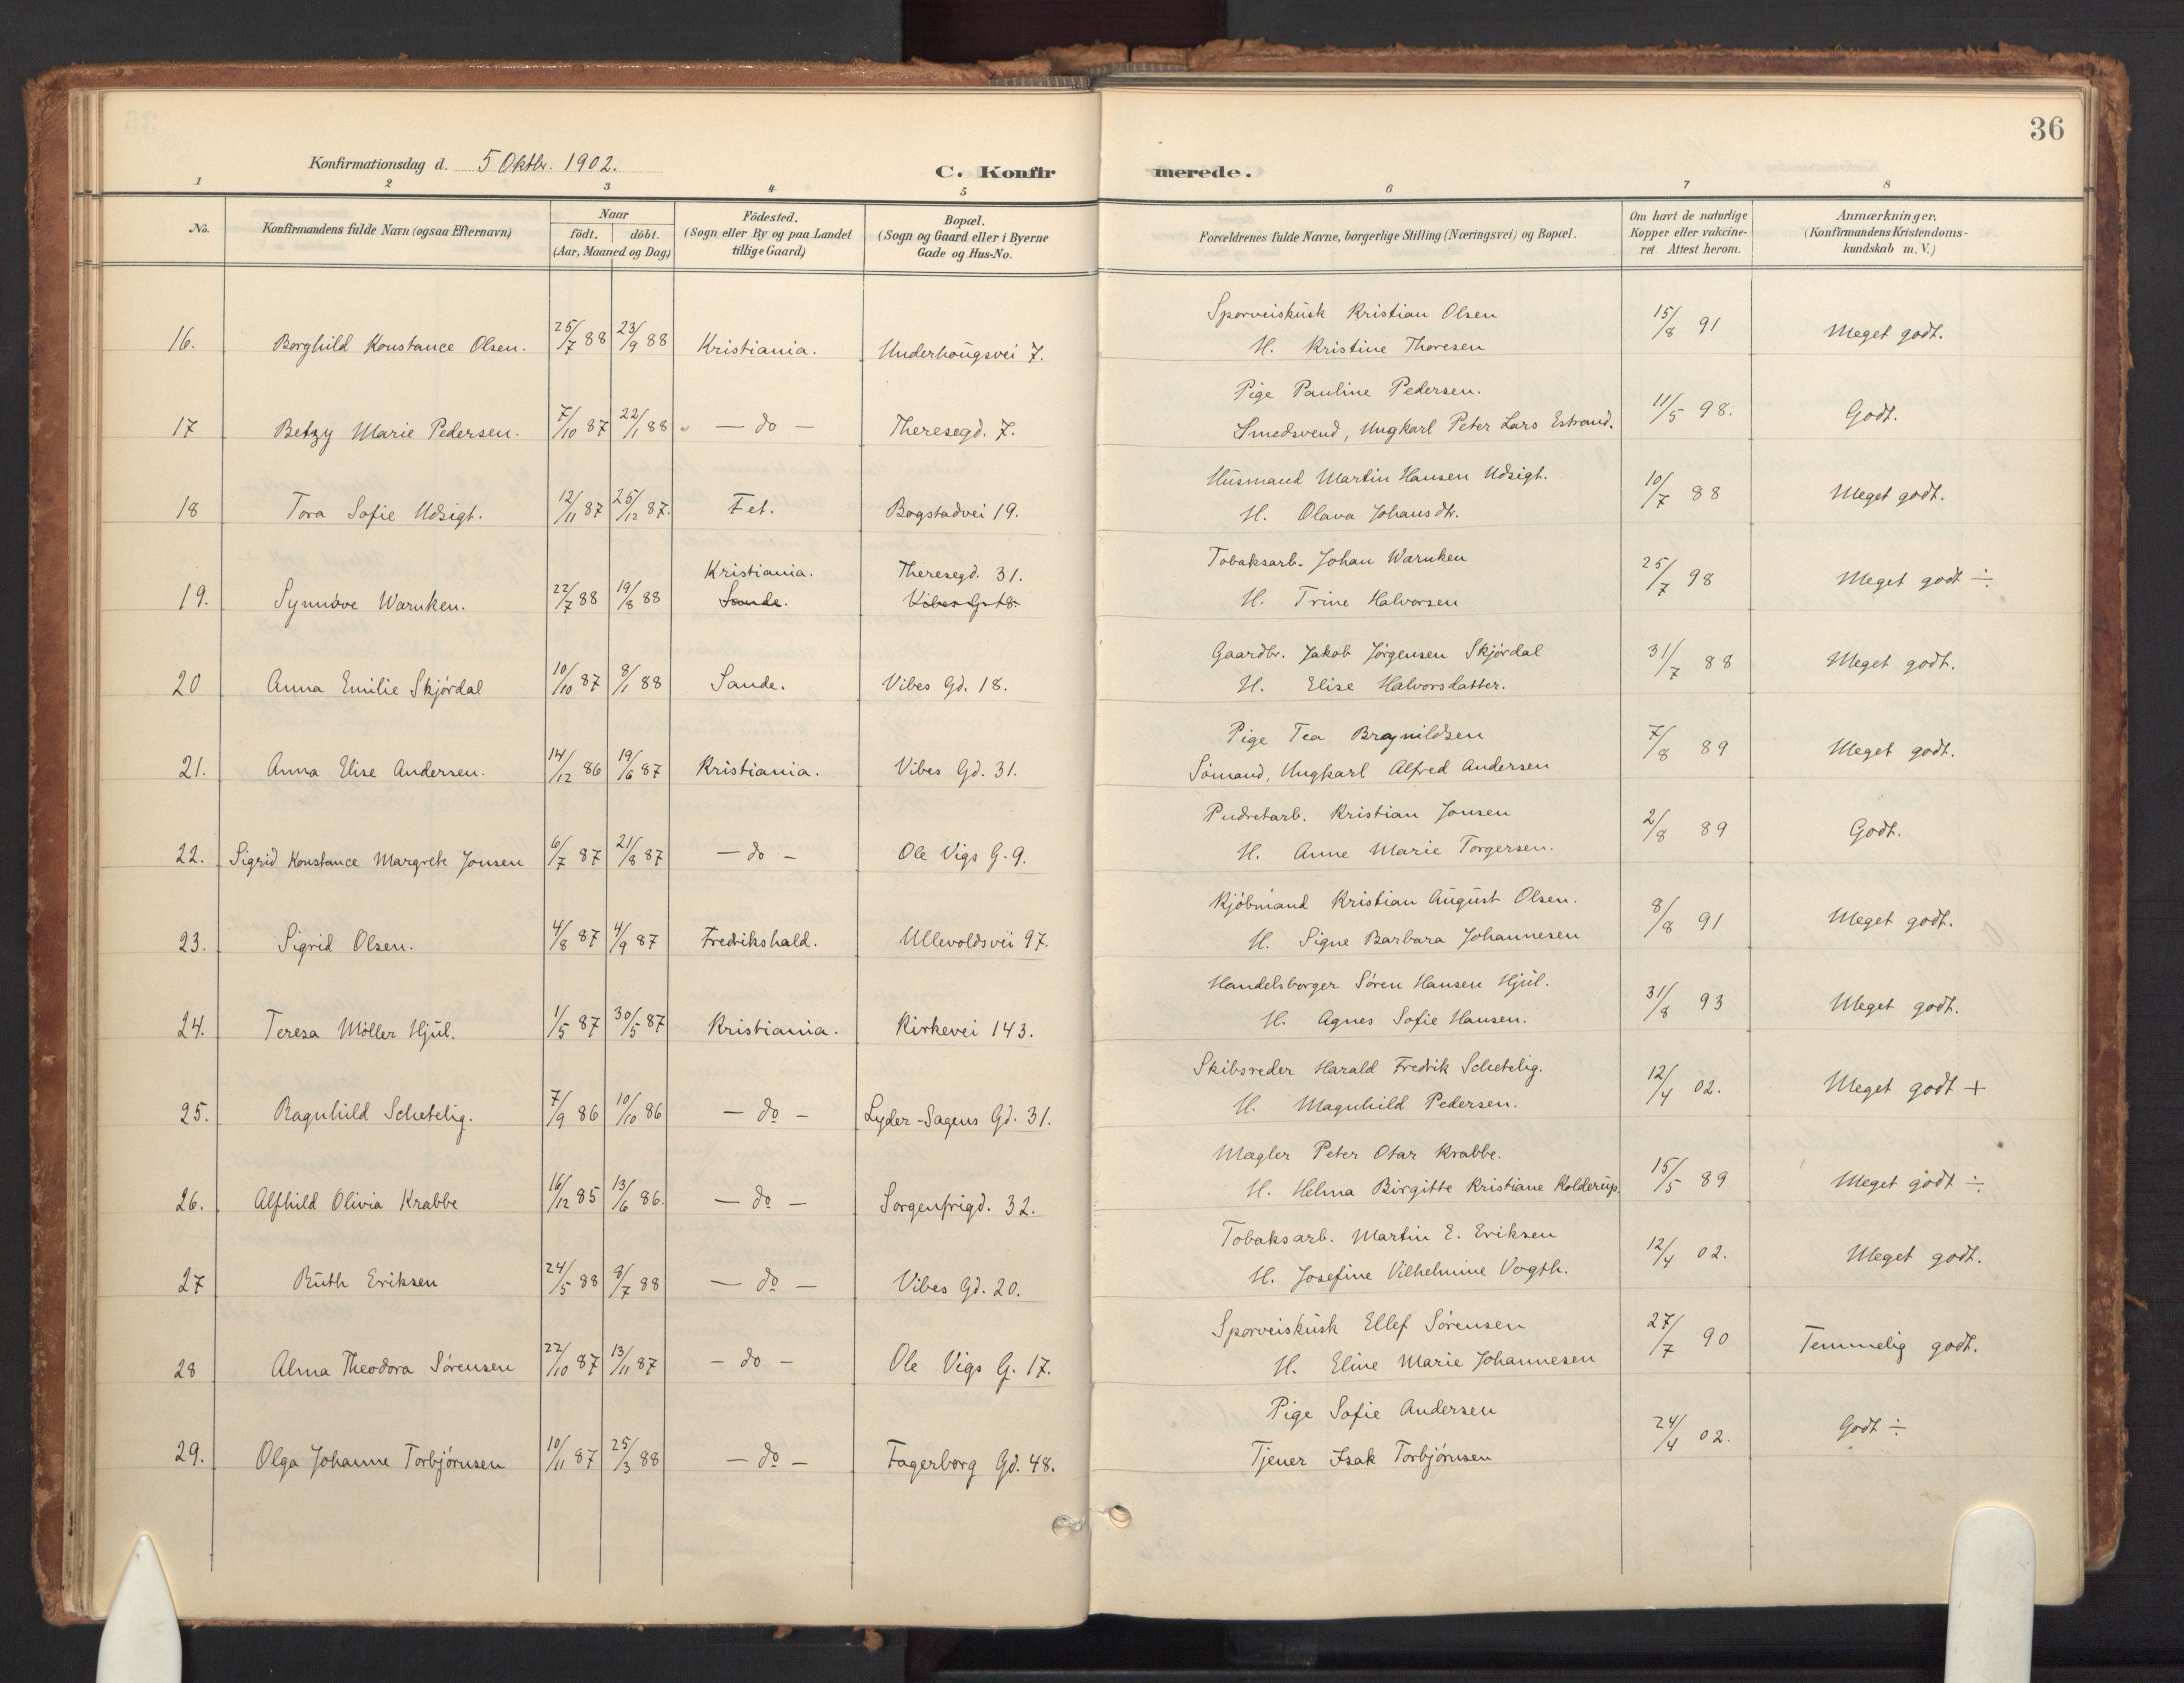 36
Konfirmationsdag d. 5 Oktbr. 1902.
C. Konfirmerede.
1 2 3 4 5 6 7 8
No.
Konfirmandens fulde Navn (ogsaa Efternavn)
Naar
födt. döbt.
(Aar, Maaned og Dag)
Födested.
(Sogn eller By og paa Landet
tillige Gaard)
Bopæl.
(Sogn og Gaard eller i Byerne
Gade og Hus-No.
Forældrenes fulde Navne, borgerlige Stilling (Næringsvei) og Bopæl.
Om havt de naturlige
Kopper eller vakcine-
ret. Attest herom.
Anmærkninger.
(Konfirmandens Kristendoms-
kundskab m. V.)
Sporveiskusk Kristian Olsen
16. Borghild Konstance Olsen. 25/7 88 23/9 88 Kristiania. Underhougsvei 7. H. Kristine Thoresen 15/8 91 Meget godt.
Pige Pauline Pedersen.
17 Betzy Marie Pedersen. 7/10 87 22/1 88 — do — Theresegd. 7. Smedsvend, Ungkarl Peter Lars Estrand. 11/5 98. Godt.
Husmand Martin Hansen Udsigt.
18 Tora Sofie Udsigt. 12/11 87 25/12 87. Fet. Bogstadvei 19. H. Olava Johansdtr. 10/7 88 Meget godt.
Kristiania. Theresegd. 31. Tobaksarb. Johan Warnken
19. Synnöve Warnken. 22/7 88 19/8 88 Sande. Vibes G. 18. H. Trine Halvorsen 25/7 98 Meget godt ÷
Gaardbr. Jakob Jörgensen Skjördal
20 Anna Emilie Skjördal 10/10 87 8/1 88 Sande. Vibes Gd. 18. H. Elise Halvorsdatter. 31/7 88 Meget godt.
Pige Tea Bragnildsen
21. Anna Elise Andersen. 14/12 86 19/6 87 Kristiania. Vibes Gd. 31. Sömand, Ungkarl Alfred Andersen 7/8 89 Meget godt.
Pudretarb. Kristian Jonsen
22. Sigrid Konstance Margrete Jonsen 6/7 87 21/8 87 — do — Ole Vigs G. 9. H. Anne Marie Torgersen. 2/8 89 Godt.
Kjöbmand Kristian August Olsen.
23. Sigrid Olsen. 4/8 87 4/9 87 Fredrikshald. Ullevoldsvei 97. H. Signe Barbara Johannesen 8/8 91 Meget godt.
Handelsborger Sören Hansen Hjul.
24. Teresa Möller Hjul. 1/5 87 30/5 87 Kristiania. Kirkevei 143. H. Agnes Sofie Hansen. 31/8 93 Meget godt.
Skibsreder Harald Fredrik Schetelig.
25. Ragnhild Schetelig. 7/9 86 10/10 86 — do — Lyder-Sagens Gd. 31. H. Magnhild Pedersen. 12/4 02. Meget godt +
Mægler Peter Otar Krabbe.
26. Alfhild Olivia Krabbe 16/12 85 13/6 86. — do — Sorgenfrigd. 32. H. Helma Birgitte Kristiane Kolderup. 15/5 89 Meget godt ÷
Tobaksarb. Martin E. Eriksen
27 Ruth Eriksen 24/5 88 8/7 88 — do — Vibes Gd. 20. H. Josefine Vilhelmine Vogth. 12/4 02. Meget godt.
Sporveiskusk Ellef Sörensen
28 Alma Theodora Sörensen 22/10 87 13/11 87 — do — Ole Vigs G. 17. H. Eline Marie Johannesen 27/7 90 Temmelig godt.
Pige Sofie Andersen
29. Olga Johanne Torbjörnsen 10/11 87 25/3 88 — do — Fagerborg Gd. 48. Tjener Isak Torbjörnsen 24/4 02. Godt ÷